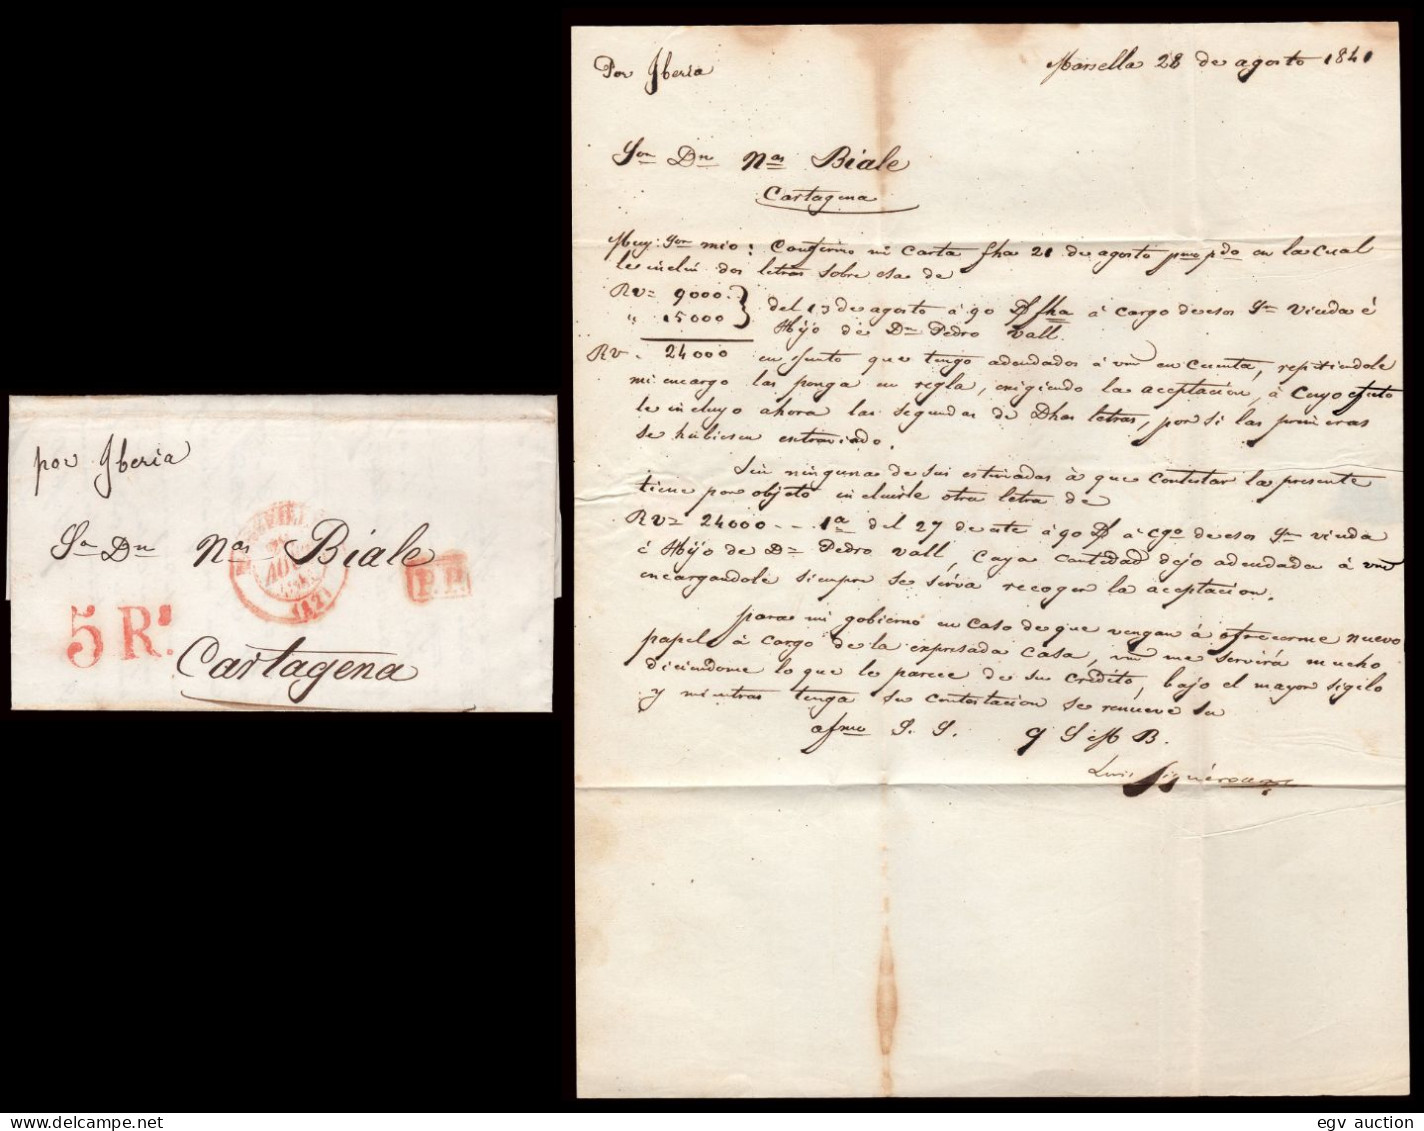 por Iberia
Sor Dn Nas Biale
5 Rs.
P.P.
(12)
Cartagena
Por Iberia
Marsella 28 de agosto 1841
Sor Dn Nas Biale
Cartagena
Muy Sor mio: Confirmo mi carta fha 21 de agosto pmo pdo en la cual
le incluí dos letras sobre esa de
RV= 9000
" 15000 } del 13 de agosto à 90 D/ fha à cargo de esos Sres Viuda é
Hijo de Dn Pedro Vall
RV= 24000 en junto que tengo adeudados à vm en cuenta, repitiendole
mi encargo las ponga en regla, exigiendo la aceptacion, à cuyo efecto
le incluyo ahora las segundas de Dhas letras, por si las primeras
se hubiesen extraviado.
Sin ninguna de sus estimadas à que contestar la presente
tiene por objeto incluirle otra letra de
RV= 24000 -- 1a del 27 de este à 90 D/ à cgo de esos Sres viuda
é Hijo de Dn Pedro Vall, cuya cantidad dejo adeudada à vm
encargandole siempre se sirva recoger la aceptacion.
para mi gobierno en caso de que vengan à ofrecerme nuevo
papel à cargo de la expresada casa, vm me servirá mucho
diciendome lo que le parece de su credito, bajo el mayor sigilo
y mientras tenga su contestacion se renueve su
afmo S. S. q S M B.
Luis
egv auction